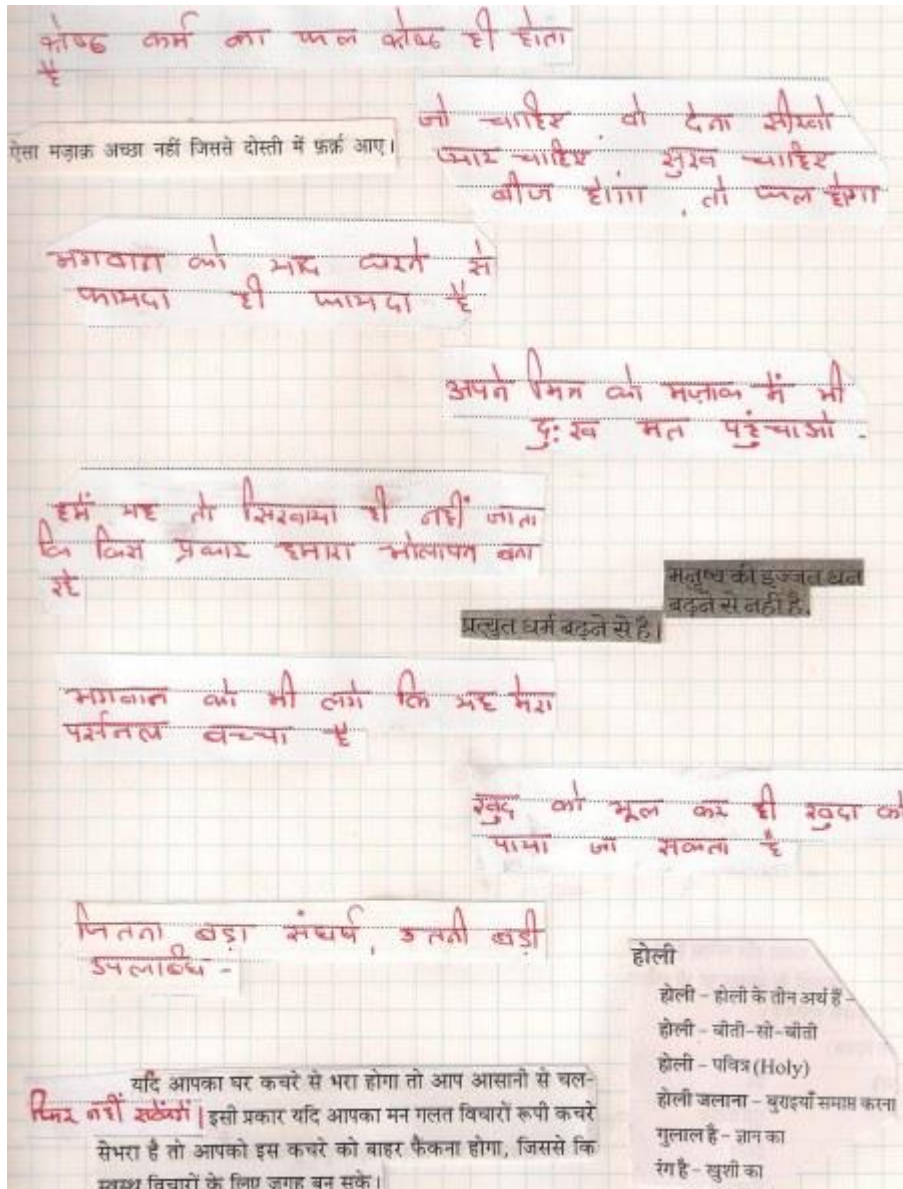 श्रेष्ठ कर्म का फल श्रेष्ठ ही होता
है
जो चाहिए, वो देना सीखो
प्यार चाहिए सुख चाहिए
बीज होगा, तो फल होगा
ऐसा मज़ाक़ अच्छा नहीं जिससे दोस्ती में फ़र्क़ आए।
भगवान को याद करने से
फायदा ही फायदा है
अपने मित्र को मज़ाक में भी
दुःख मत पहुंचाओ -
हमें यह तो सिखाया ही नहीं जाता
कि किस प्रकार हमारा भोलापन बना
रहे
मनुष्य की इज्जत धन
बढ़ने से नहीं है,
प्रत्युत धर्म बढ़ने से है।
भगवान को भी लगे कि यह मेरा
पर्सनल बच्चा है
खुद को भूल कर ही खुदा को
पाया जा सकता है
जितना बड़ा संघर्ष, उतनी बड़ी
उपलब्धि -
होली
होली - होली के तीन अर्थ हैं -
होली - बीती-सो-बीती
होली - पवित्र (Holy)
होली जलाना - बुराइयाँ समाप्त करना
गुलाल है - ज्ञान का
रंग है - खुशी का
यदि आपका घर कचरे से भरा होगा तो आप आसानी से चल-
फिर नहीं सकेंगे | इसी प्रकार यदि आपका मन गलत विचारों रूपी कचरे
सेभरा है तो आपको इस कचरे को बाहर फैकना होगा, जिससे कि
स्वस्थ विचारों के लिए जगह बन सके।